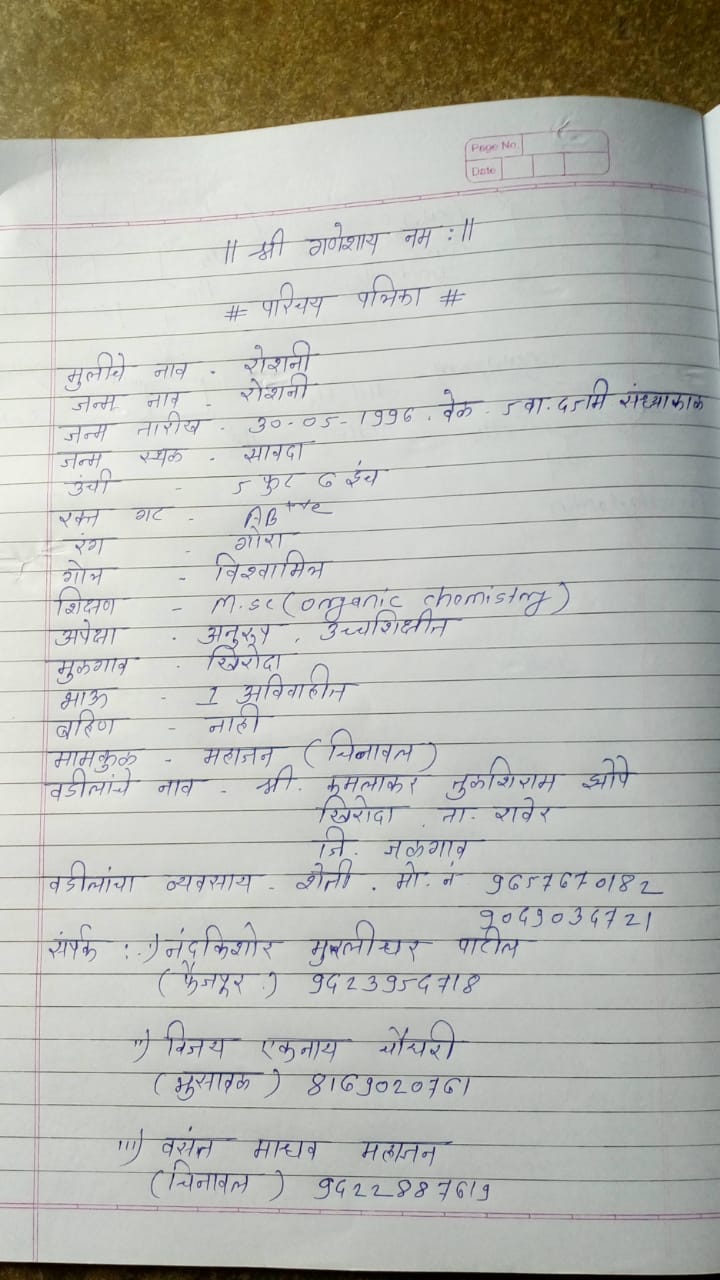 Page No.
Date
|| श्री गणेशाय नम : ||
# परिचय पत्रिका #
मुलीचे नाव - रोशनी
जन्म नाव - रोशनी
जन्म तारीख - 30-05-1996. वेळ - ५ वा. ६५ मि संध्याकाळ
जन्म स्थळ - सावदा
उंची - ५ फुट ६ इंच
रक्त गट - AB +ve
रंग - गोरा
गोत्र - विश्वामित्र
शिक्षण - M.sc (organic chemistry)
अपेक्षा - अनुरूप, उच्चशिक्षीत
मुळगाव - खिरोदा
भाऊ - 1 अविवाहीत
बहिण - नाही
मामकुळ - महाजन (चिनावल)
वडीलांचे नाव - श्री. कमलाकर तुळशिराम झोपे
खिरोदा. ता. रावेर
जि. जळगाव
वडीलांचा व्यवसाय - शेती. मो. नं 9657670182
9049034721
संर्पक : i) नंदकिशोर मुरलीधर पाटील
(फैजपूर) 9423954718
ii) विजय एकनाथ चौधरी
(भुसावळ) 8169020761
iii) वसंत माधव महाजन
(चिनावल) 9422887619